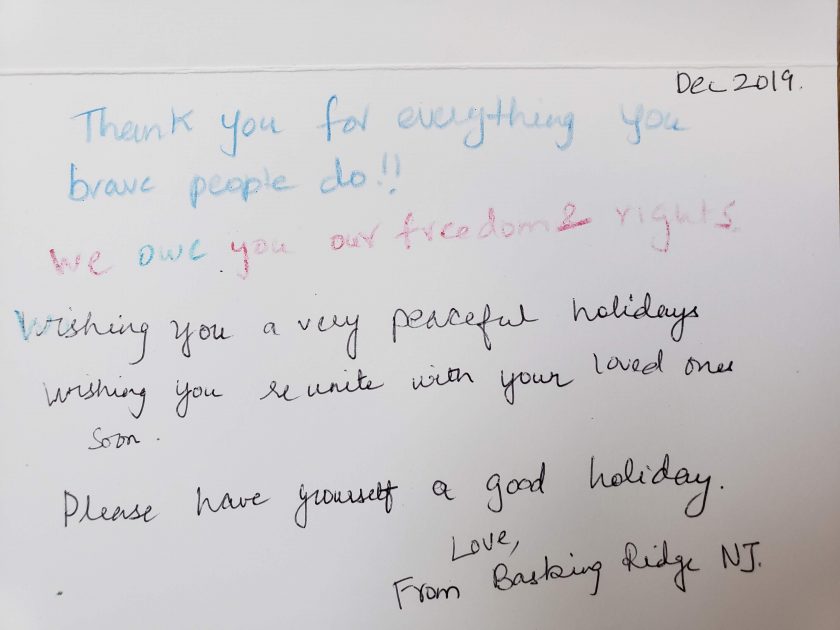 Dec 2019.
Thank you for everything you
brave people do!!
We owe you our freedom & rights
Wishing you a very peaceful holidays
Wishing you reunite with your loved ones
soon.
Please have yourself a good holiday.
Love,
From Basking Ridge NJ.